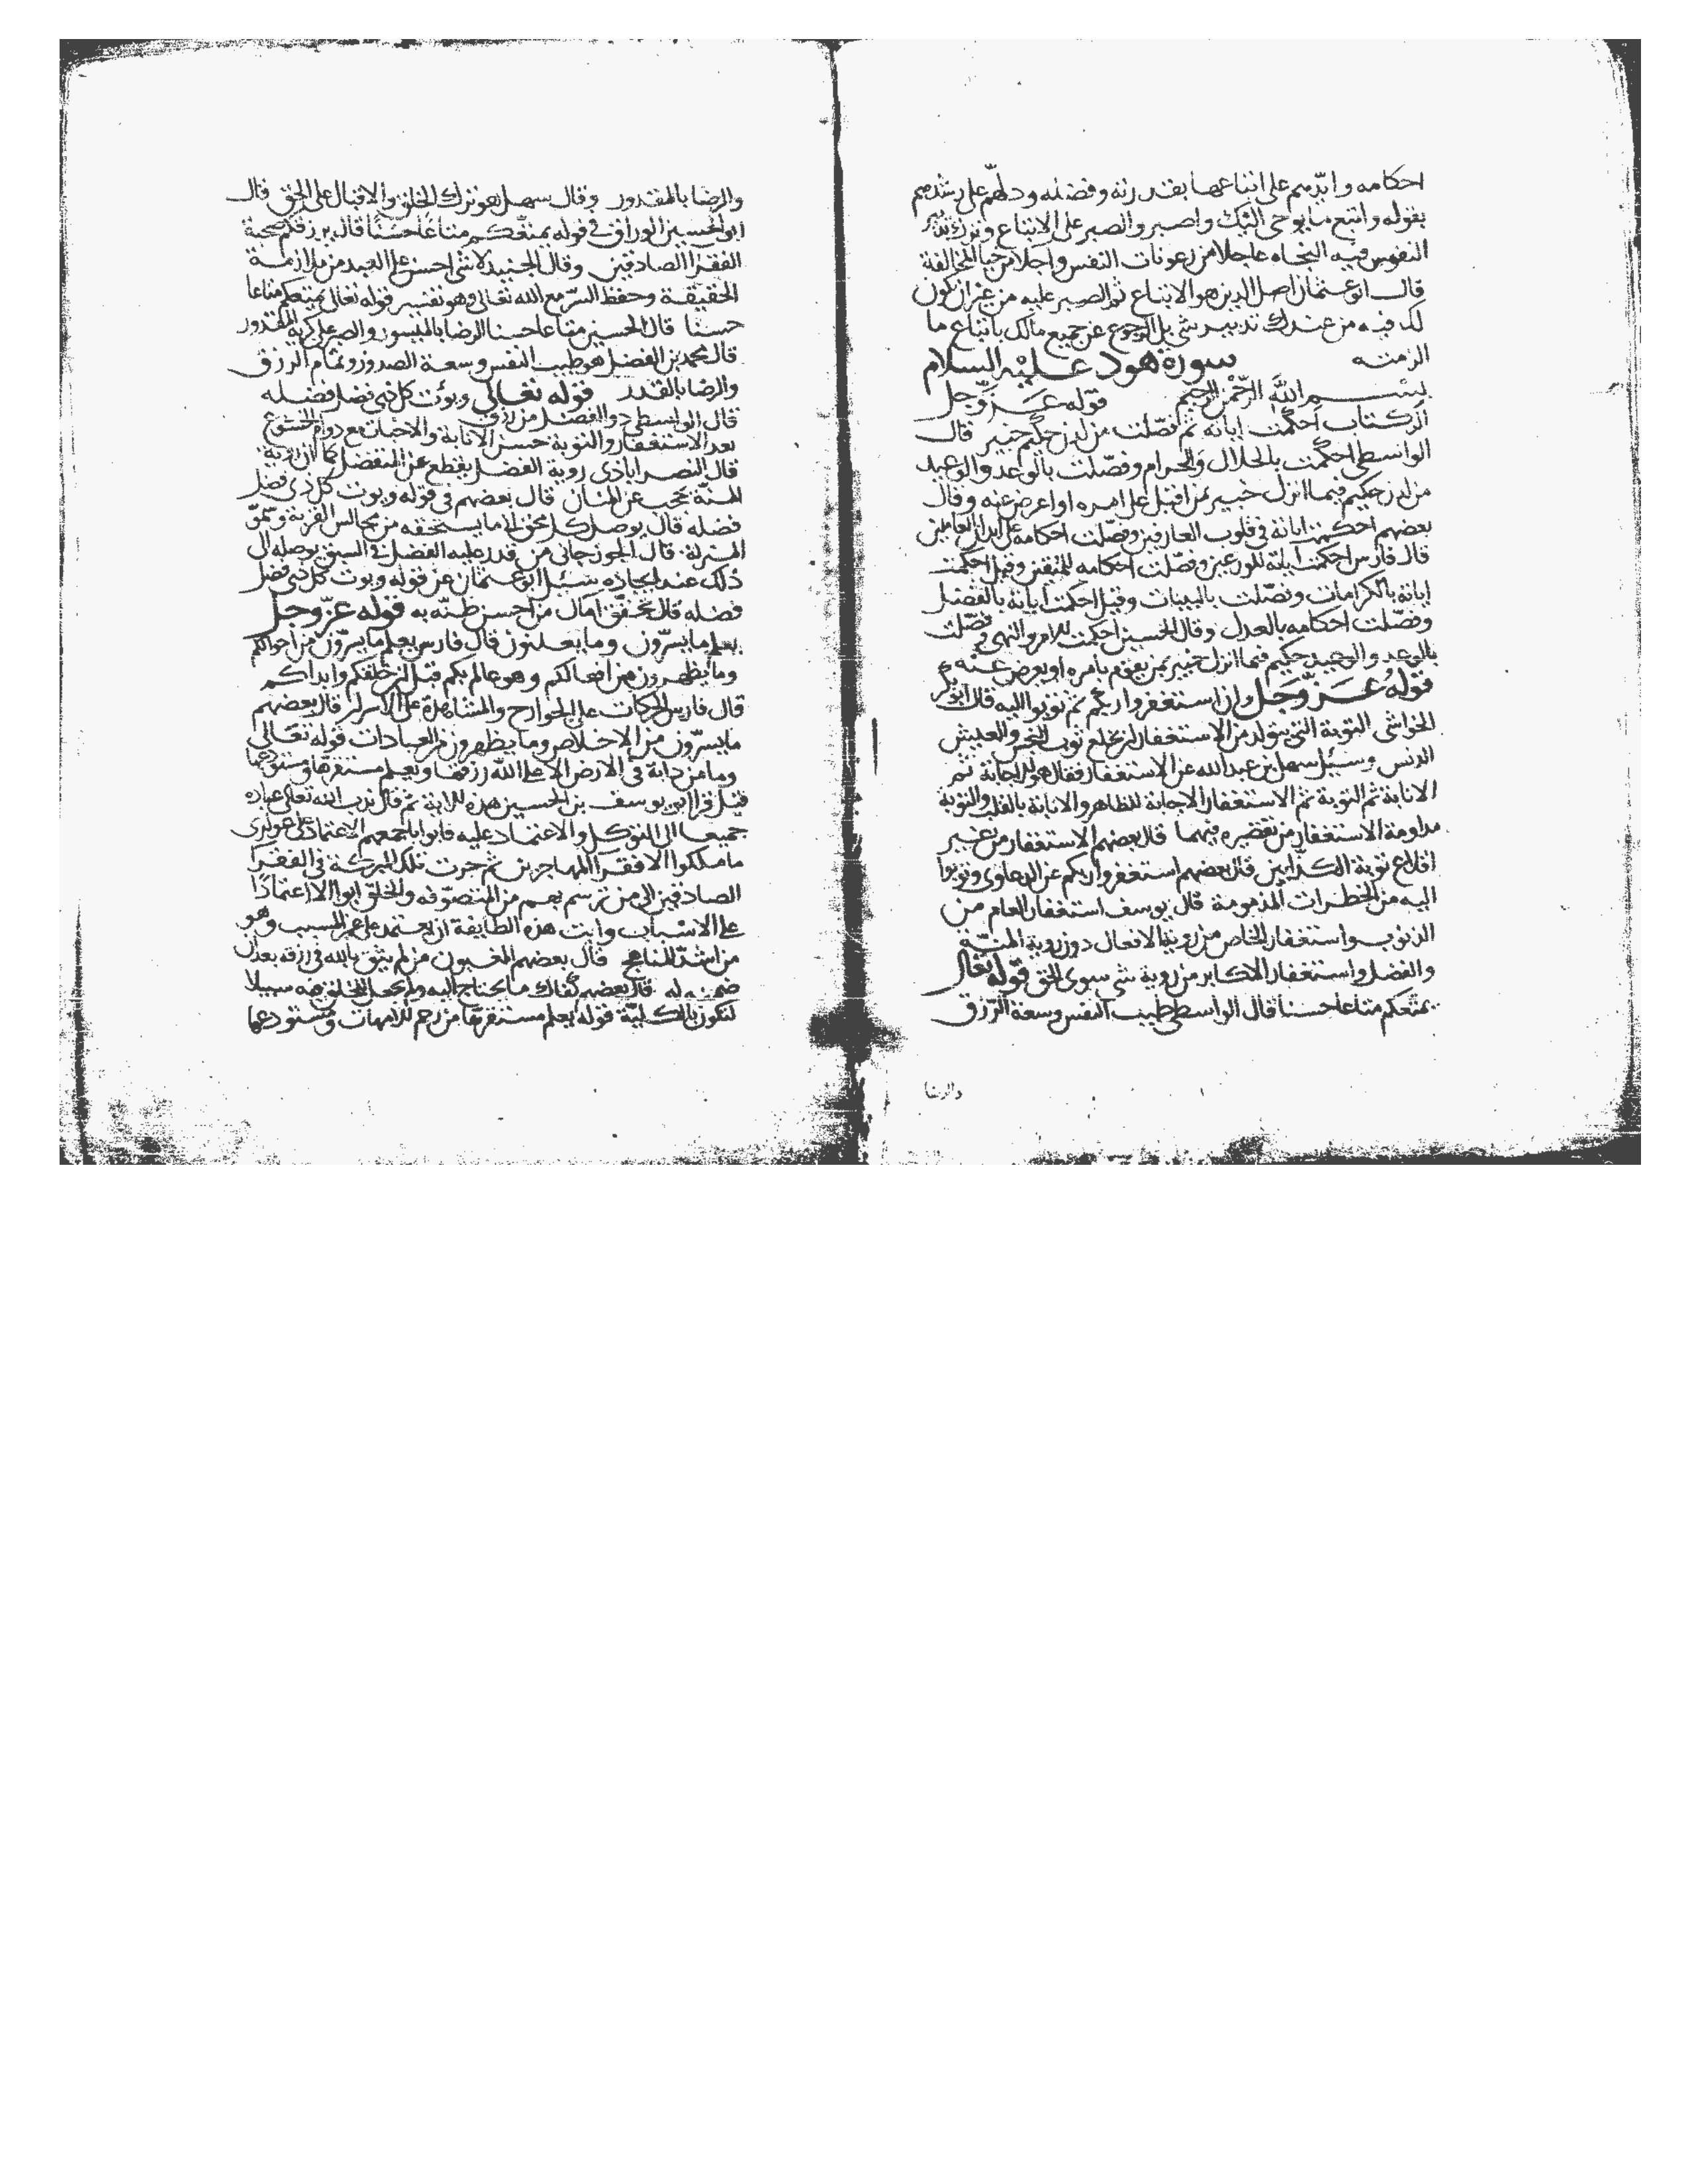 احكامه وايدهم على اتباعها بقدرته وفضله ودلهم على رشدهم
بقوله واتبع ما يوحى اليك واصبر والصبر على الاتباع وترك تدبير
النفوس فيه النجاه عاجلا من رعونات النفس واجلا من حيا المخالفة
قال ابو عثمان اصل الدين هو الاتباع ثم الصبر عليه من غير ان يكون
لك فيه من عندك تدبير شي بل الرجوع عن جميع مالك باتباع ما
الزمته سورة هود عليه السلام
بسم الله الرحمن الرحيم قوله عز وجل
الر كتاب احكمت اياته ثم فصلت من لدن حكيم خبير قال
الواسطي احكمت بالحلال والحرام وفصلت بالوعد والوعيد
من لدن حكيم فيما انزل خبير بمن اقبل على امره او اعرض عنه وقال
بعضهم احكمت اياته في قلوب العارفين وفصلت احكامه على ابدان العاملين
قال فارس احكمت اياته للورعين وفصلت احكامه للمتقين وقيل احكمت
اياته بالكرامات وفصلت بالبينات وقيل احكمت اياته بالفضل
وفصلت احكامه بالعدل وقال الحسين احكمت للامر والنهي وفصلت
بالوعد والوعيد حكيم فيما انزل خبير بمن يقوم بامره او يعرض عنه
قوله عز وجل وان استغفروا ربكم ثم توبوا اليه قال ابو بكر
التوبة التي تتولد من الاستغفار ان تخلع ثوب النجس والعيش
الدنس وسئل سهل بن عبد الله عن الاستغفار فقال هو الاجابة ثم
الانابة ثم التوبة ثم الاستغفار الاجابة للظاهر والانابة بالقلب والتوبة
مداومة الاستغفار من تقصيره فيهما قال بعضهم الاستغفار من غير
اقلاع توبة الكذابين قال بعضهم استغفروا ربكم عن الدعاوى وتوبوا
اليه من الخطرات المذمومة قال يوسف استغفار العام من
الذنوب واستغفار الخاص من روية الافعال دون روية المنة
والفضل واستغفار الاكابر من روية شي سوى الحق قوله تعالى
يمتعكم متاعا حسنا قال الواسطي طيب النفس وسعة الرزق
والرضا
والرضا بالمقدور وقال سهل هو ترك الخلق والاقبال على الحق قال
ابو الحسين الوراق في قوله يمتعكم متاعا حسنا قال يرزقكم صحبة
الفقرا الصادقين وقال الجنيد لا شي احسن على العبد من ملازمة
الحقيقة وحفظ السر مع الله تعالى وهو تفسير قوله تعالى يمتعكم متاعا
حسنا قال الحسين متاعا حسنا الرضا بالميسور والصبر على كريه المقدور
قال محمد بن الفضل هو طيب النفس وسعة الصدور وتمام الرزق
والرضا بالقدر قوله تعالى ويوت كل ذي فضل فضله
قال الواسطي ذو الفضل من رزق
بعد الاستغفار والتوبة حسن الانابة والاخبات مع دوام الخشوع
قال النصر ابادي روية الفضل يقطع عن المتفضل كما ان روية
المنة تحجب عن المنان قال بعضهم في قوله ويوت كل ذي فضل
فضله قال يوصل كل محق الى ما يستحقه من مجالس القربة وسمو
المنزلة قال الجوزجاني من قدر عليه الفضل في السبق يوصله الى
ذلك عند ايجاده سئل ابو عثمان عن قوله ويوت كل ذي فضل
فضله قال تحقق امال من احسن ظنه به قوله عز وجل
يعلم ما يسرون وما يعلنون قال فارس يعلم ما يسرون من احوالكم
وما يظهرون من افعالكم وهو عالم بكم قبل ان خلقكم وابداكم
قال فارس الحركات على الجوارح والمشاهدة على الاسرار قال بعضهم
ما يسرون من الاخلاص وما يظهرون من العبادات قوله تعالى
وما من دابة في الارض الا على الله رزقها ويعلم مستقرها ومستودعها
قيل قرا ابو يوسف بن الحسين هذه الاية ثم قال ندب الله تعالى عباده
جميعا الى التوكل والاعتماد عليه فابوا باجمعهم الا الاعتماد على عوارى
ما ملكوا الا فقرا المهاجرين ثم جرت تلك البركة في الفقرا
الصادقين الى من ترسم بهم من المتصوفه والخلق ابوا الا اعتمادا
على الاسباب وابت هذه الطايفة ان يعتمد على غير المسبب وهو
من اشد المناهج قال بعضهم المغبون من لم يثق بالله في رزقه بعد ان
ضمنه له قال بعضهم كفاك ما يحتاج اليه ولم يجعل للخلق فيه سبيلا
لتكون بالكلية قوله يعلم مستقرها من رحم الامهات ومستودعها